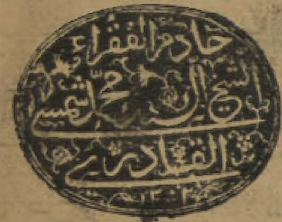 خادم الفقراء
الشيخ محمد شمسي
القادري
١٣٠٢